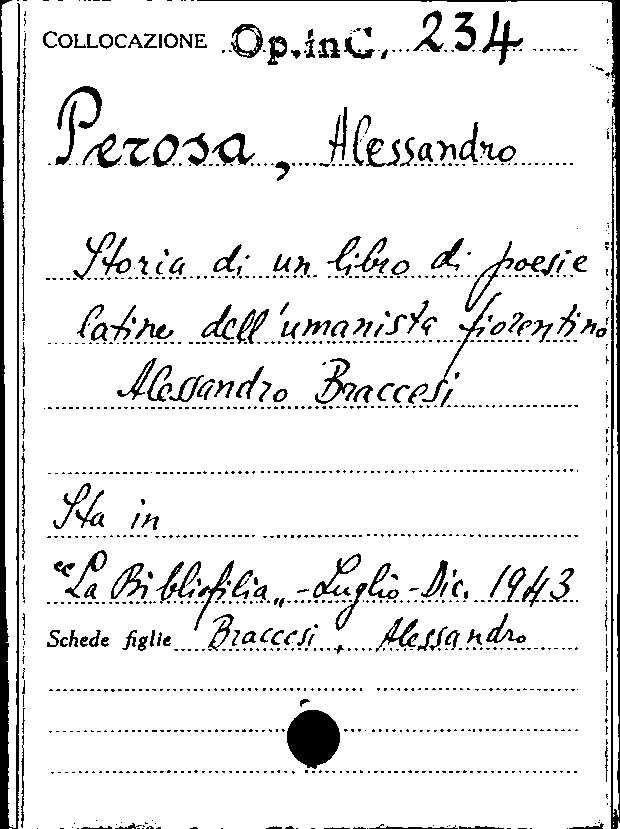 COLLOCAZIONE Op.inC. 234
Perosa, Alessandro
Storia di un libro di poesie
latine dell'umanista fiorentino
Alessandro Braccesi
Sta in
"La Bibliofilia„ - Luglio - Dic. 1943
Schede figlie Braccesi, Alessandro